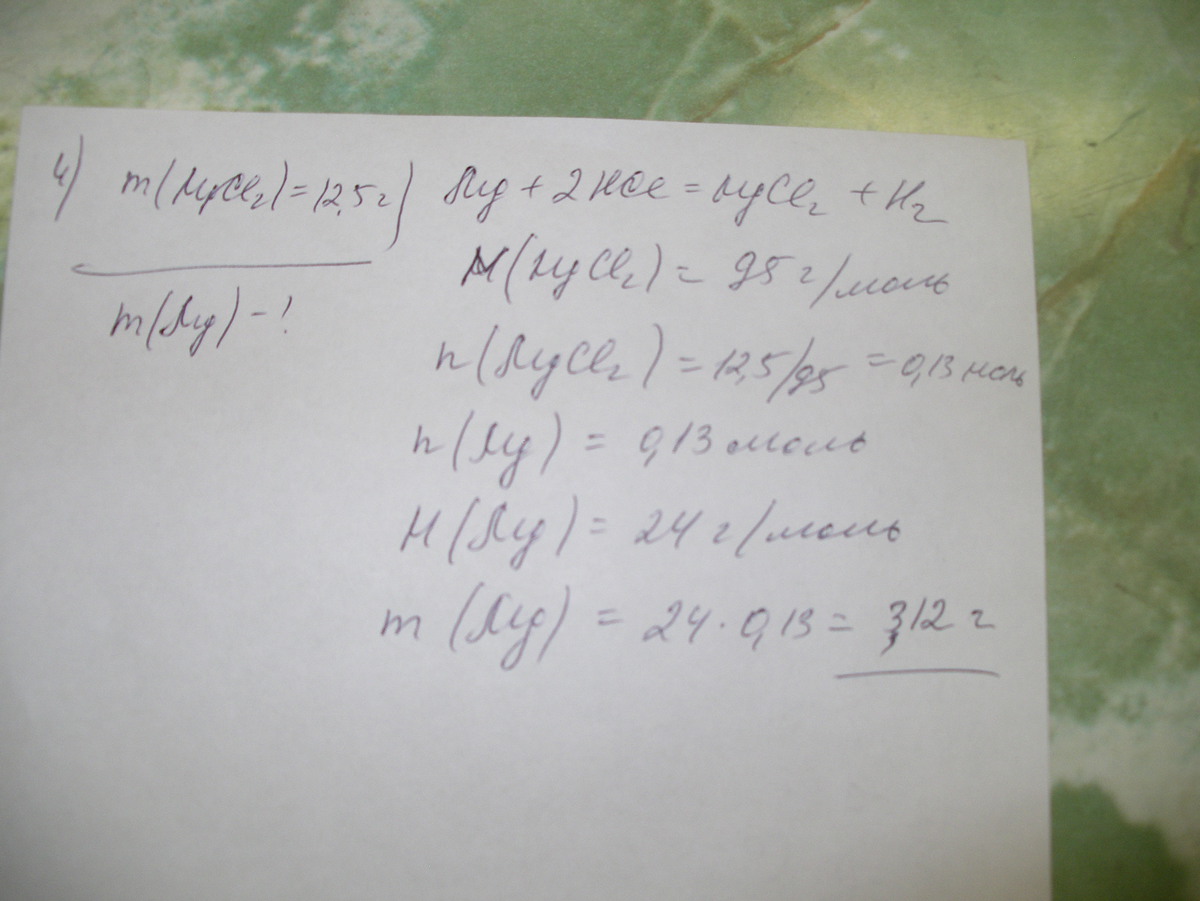 4) m(MgCl₂)=12,5 г) Mg + 2HCl = MgCl₂ + H₂
m(Mg) - ?
M(MgCl₂) = 95 г/моль
n(MgCl₂) = 12,5/95 = 0,13 моль
n(Mg) = 0,13 моль
M(Mg) = 24 г/моль
m (Mg) = 24 · 0,13 = 3,12 г